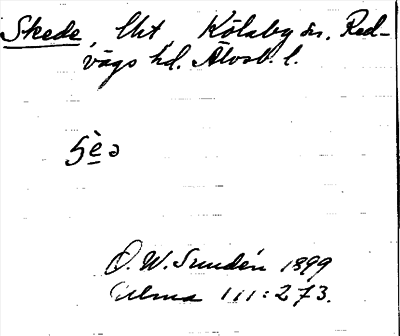 Skede, Utt, Kölaby sn. Red-
vägs hd. Älvsb. l.
O. W. Sundén 1899
Alma 111:273.